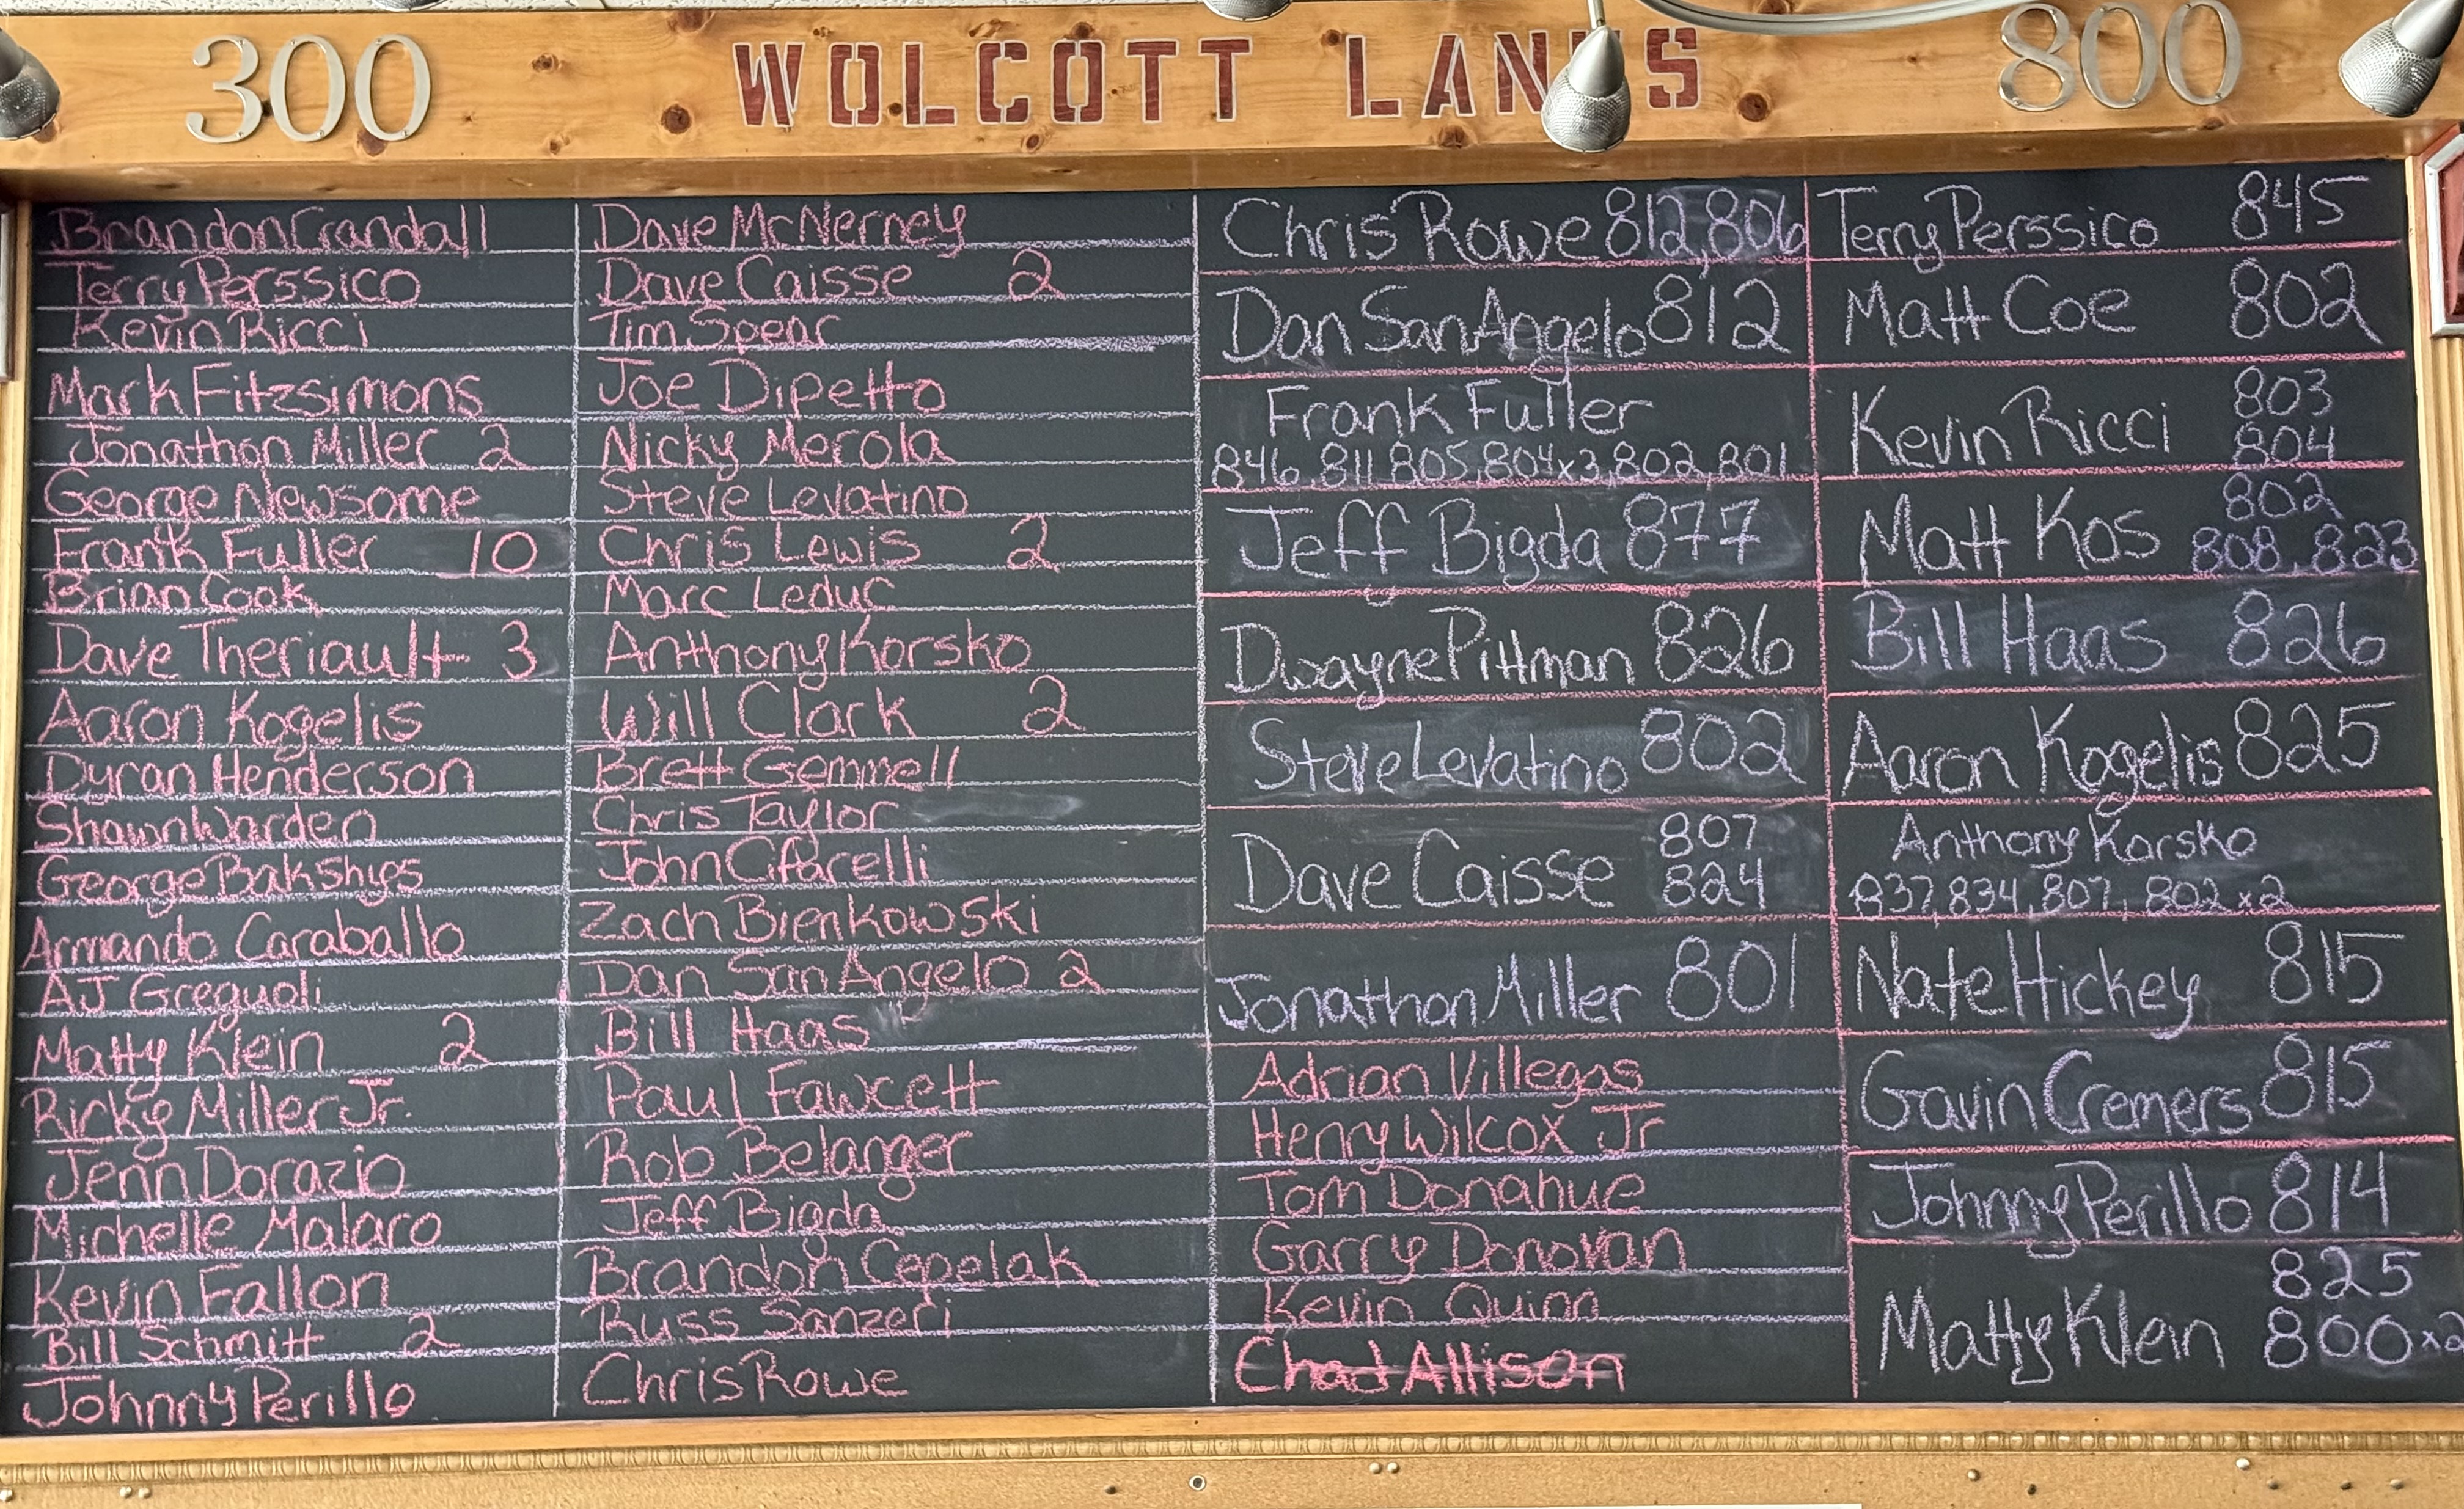 300 WOLCOTT LANES 800
Brandon Crandall
Terry Perssico
Kevin Ricci
Mark Fitzsimons
Jonathon Miller 2
George Newsome
Frank Fuller 10
Brian Cook
Dave Theriault 3
Aaron Kogelis
Dyran Henderson
Shawn Warden
George Bakshys
Armando Caraballo
AJ Greguoli
Matty Klein 2
Ricky Miller Jr.
Jenn Dorazio
Michelle Malaro
Kevin Fallon
Bill Schmitt 2
Johnny Perillo
Dave McNerney
Dave Caisse 2
Tim Spear
Joe Dipetto
Nicky Merola
Steve Levatino
Chris Lewis 2
Marc Leduc
Anthony Korsko
Will Clark 2
Brett Gemmell
Chris Taylor
John Cifarelli
Zach Bienkowski
Dan San Angelo 2
Bill Haas
Paul Fawcett
Rob Belanger
Jeff Bigda
Brandon Cepelak
Russ Sanzeri
Chris Rowe
Chris Rowe 812,806
Dan San Angelo 812
Frank Fuller
846,811,805,804x3,802,801
Jeff Bigda 877
Dwayne Pittman 826
Steve Levatino 802
Dave Caisse 807
824
Jonathon Miller 801
Adrian Villegas
Henry Wilcox Jr
Tom Donahue
Garry Donovan
Kevin Quinn
Chad Allison
Terry Perssico 845
Matt Coe 802
Kevin Ricci 803
804
Matt Kos 802
808,823
Bill Haas 826
Aaron Kogelis 825
Anthony Korsko
837,834,807,802x2
Nate Hickey 815
Gavin Cremers 815
Johnny Perillo 814
Matty Klein 825
800x2